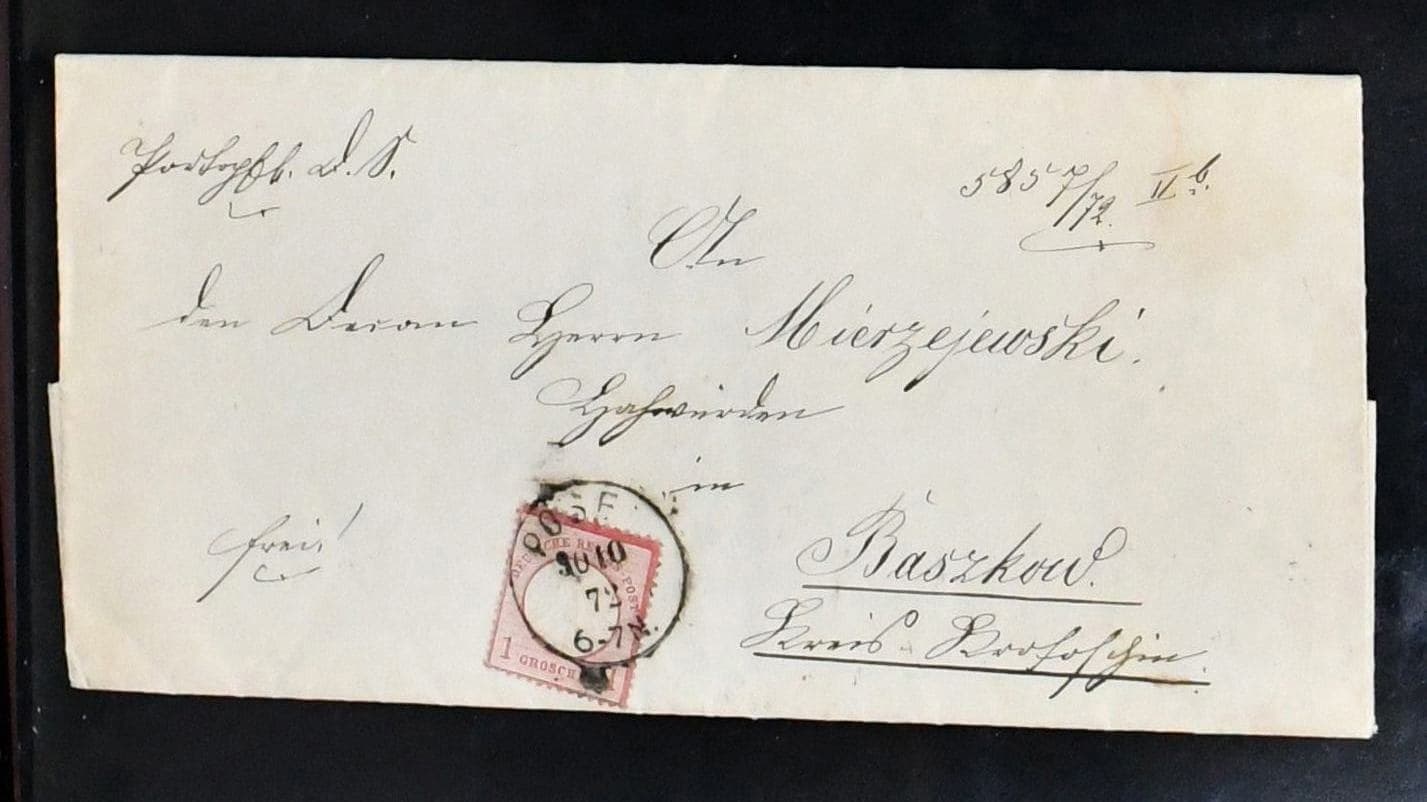 Portopfl. D. S.
5857/72. II b.
An
den Decan Herrn Mierzejewski.
Hochwürden
in
frei!
Baszkow.
Kreis Krotoschin.
POSE
30 10
72
6-7 N.
DEUTSCHE REICHS-POST
1 GROSCHEN